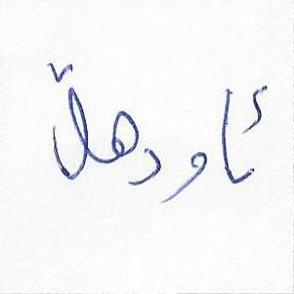 ئاودهڵ